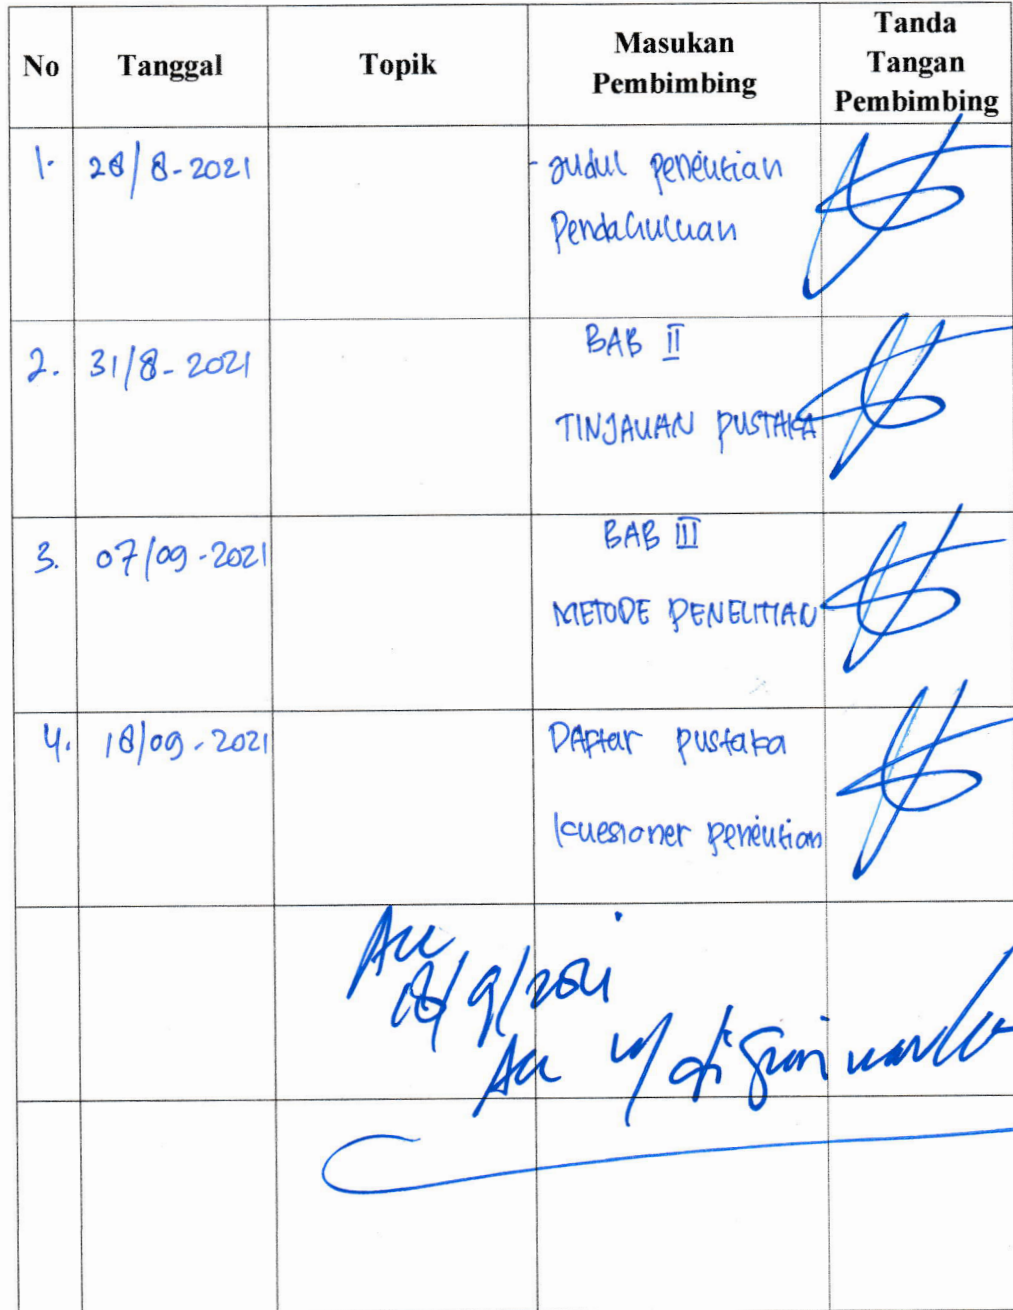 No Tanggal Topik Masukan Pembimbing Tanda Tangan Pembimbing
1. 28/8-2021 - Judul penelitian
Pendahuluan
2. 31/8-2021 BAB II
TINJAUAN PUSTAKA
3. 07/09-2021 BAB III
METODE PENELITIAN
4. 18/09-2021 DAFtar pustaka
kuesioner penelitian
Acc
18/9/2021
Acc u/ di